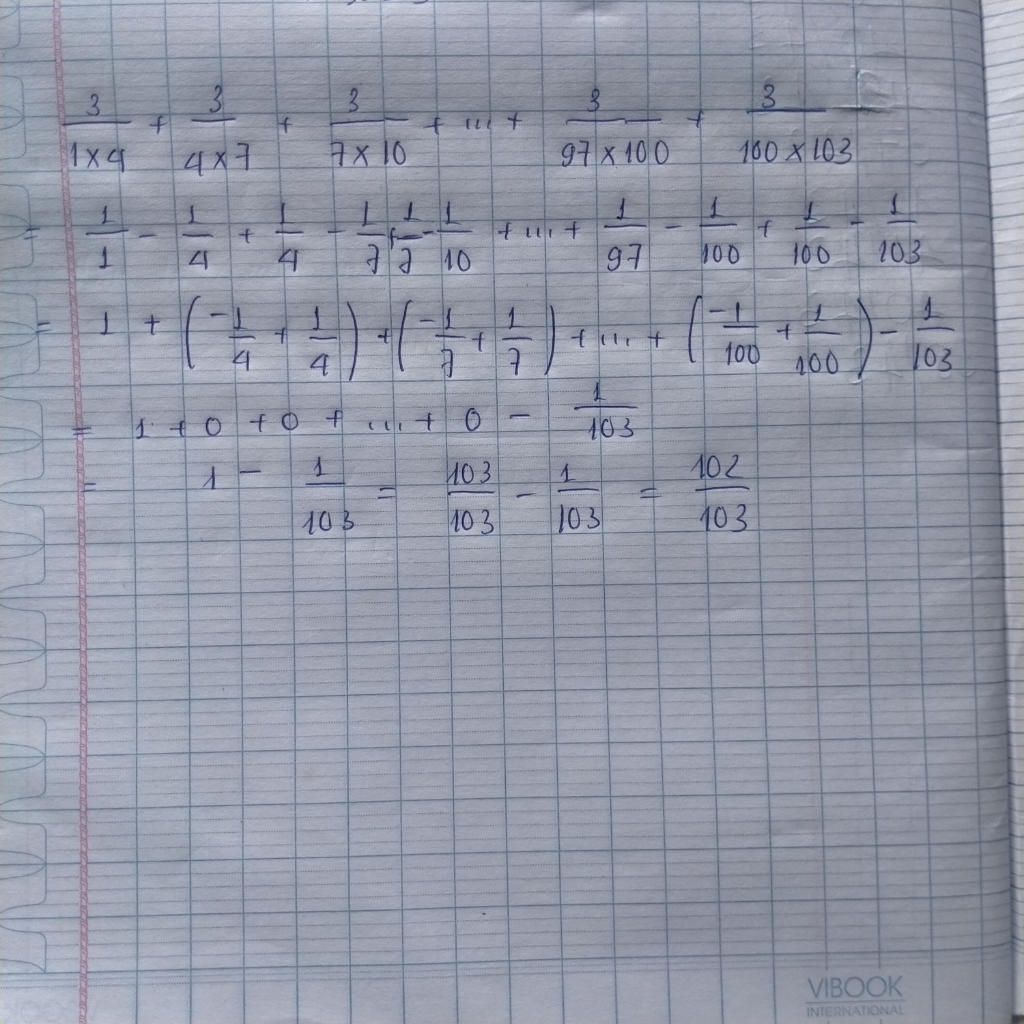 3/(1×4) + 3/(4×7) + 3/(7×10) + ... + 3/(97×100) + 3/(100×103)
= 1/1 - 1/4 + 1/4 - 1/7 + 1/7 - 1/10 + ... + 1/97 - 1/100 + 1/100 - 1/103
= 1 + (-1/4 + 1/4) + (-1/7 + 1/7) + ... + (-1/100 + 1/100) - 1/103
= 1 + 0 + 0 + ... + 0 - 1/103
= 1 - 1/103 = 103/103 - 1/103 = 102/103
VIBOOK
INTERNATIONAL